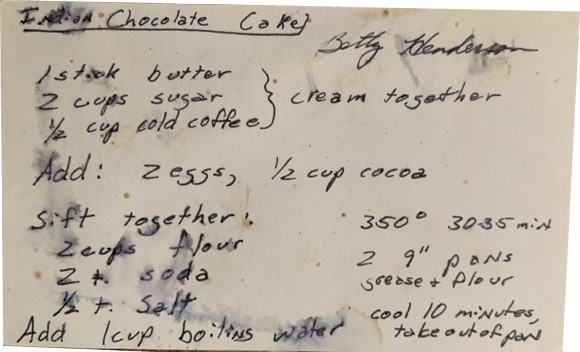 Indian Chocolate Cake
Betty Henderson
1 stick butter
2 cups sugar } cream together
1/2 cup cold coffee
Add: 2 eggs, 1/2 cup cocoa
Sift together:
2 cups flour
2 t. soda
1/2 t. salt
Add 1 cup boiling water
350° 30-35 min
2 9" pans
grease + flour
cool 10 minutes,
take out of pan